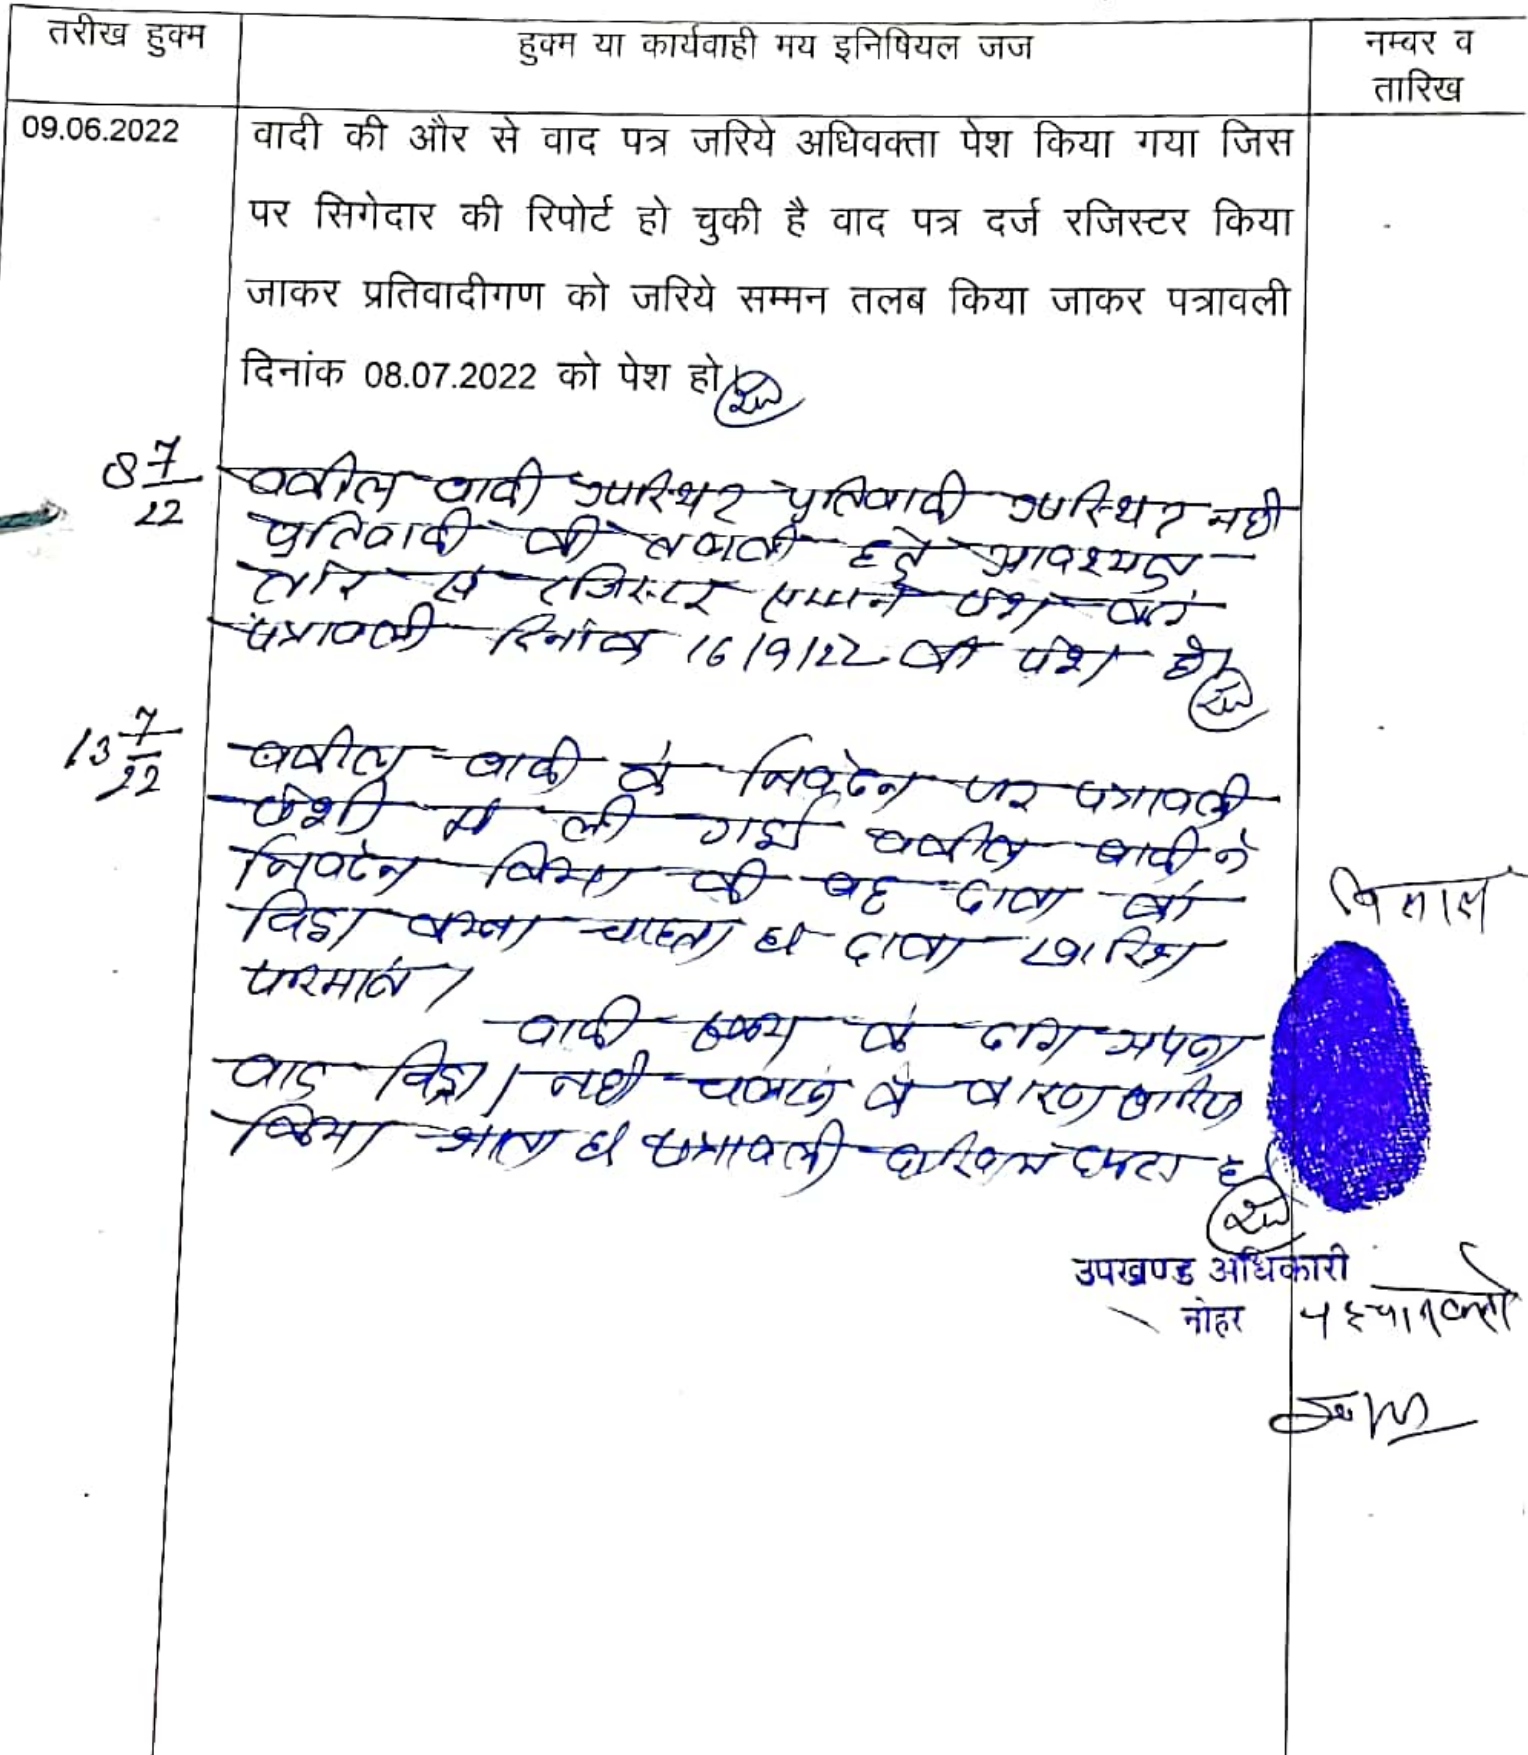 तरीख हुक्म
हुक्म या कार्यवाही मय इनिषियल जज
नम्बर व
तारिख
09.06.2022
वादी की और से वाद पत्र जरिये अधिवक्ता पेश किया गया जिस
पर सिगेदार की रिपोर्ट हो चुकी है वाद पत्र दर्ज रजिस्टर किया
जाकर प्रतिवादीगण को जरिये सम्मन तलब किया जाकर पत्रावली
दिनांक 08.07.2022 को पेश हो।
8 7/22
वकील वादी उपस्थित प्रतिवादी उपस्थित नही
प्रतिवादी की तलबी हेतु आवश्यक
तौर से रजिस्टर सम्मन पेश करे
पत्रावली दिनांक 16/9/22 को पेश हो।
13 7/22
वकील वादी के निवेदन पर पत्रावली
पेशी मे ली गई वकील वादी ने
निवेदन किया की वह दावा को
विड्रा करना चाहता है दावा खारिज
फरमावे।
वादी के द्वारा अपना
वाद विड्रा / नही चलाने के कारण खारिज
किया जाता है पत्रावली दाखिल दफ्तर हो
उपखण्ड अधिकारी
नोहर
पहचानकर्ता